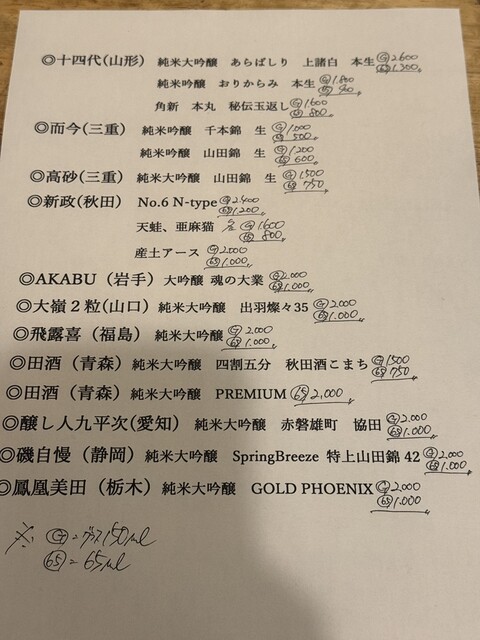 ◎十四代(山形) 純米大吟醸 あらばしり 上諸白 本生 Ⓖ2600 ㊿1,300
純米吟醸 おりからみ 本生 Ⓖ1,800
角新 本丸 秘伝玉返し Ⓖ1600 800
◎而今(三重) 純米吟醸 千本錦 生 Ⓖ1,000 500
純米吟醸 山田錦 生 Ⓖ1,200 600
◎高砂(三重) 純米大吟醸 山田錦 生 Ⓖ1,500 750
◎新政(秋田) No.6 N-type Ⓖ2,400 65 1,200
天蛙、亜麻猫 各 Ⓖ1,600 65 800
産土アース Ⓖ2,000 65 1,000
◎AKABU(岩手) 大吟醸 魂の大業 Ⓖ2,000 65 1,000
◎大嶺2粒(山口) 純米大吟醸 出羽燦々35 Ⓖ2,000 65 1,000
◎飛露喜(福島) 純米大吟醸 Ⓖ2,000 65 1,000
◎田酒(青森) 純米大吟醸 四割五分 秋田酒こまち Ⓖ1500 65 750
◎田酒(青森) 純米大吟醸 PREMIUM 65 2,000
◎醸し人九平次(愛知) 純米大吟醸 赤磐雄町 協田 Ⓖ2,000 65 1,000
◎磯自慢(静岡) 純米大吟醸 SpringBreeze 特上山田錦 42 Ⓖ2,000 65 1,000
◎鳳凰美田(栃木) 純米大吟醸 GOLD PHOENIX Ⓖ2,000 65 1,000
※ Ⓖ=グラス150ml
65=65ml